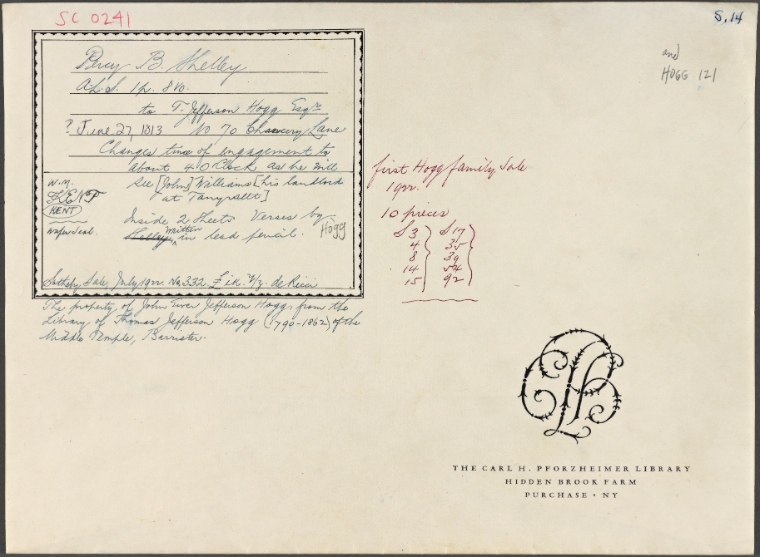 SC 0241
S. 14
and
HOGG 121
Percy B. Shelley
A.L.S. 1p. 8vo.
to T. Jefferson Hogg Esqre
? June 27, 1813 No 70 Chancery Lane
Changes time of engagement to
about 4 O'Clock as he will
see [John] Williams [his landlord
at Tanyrallt]
W.M.
KENT
Wafer seal.
Inside 2 Sheets Verses by Hogg
Shelley written in lead pencil.
Sotheby Sale, July 1922. No. 332. £
The property of John Jefferson Hogg, from the
Library of Thomas Jefferson Hogg (1790-1862) of the
Middle Temple, Barrister.
first Hogg family Sale
1922.
10 pieces
S 3 S 17
4 35
8 39
14 54
15 92
THE CARL H. PFORZHEIMER LIBRARY
HIDDEN BROOK FARM
PURCHASE · NY